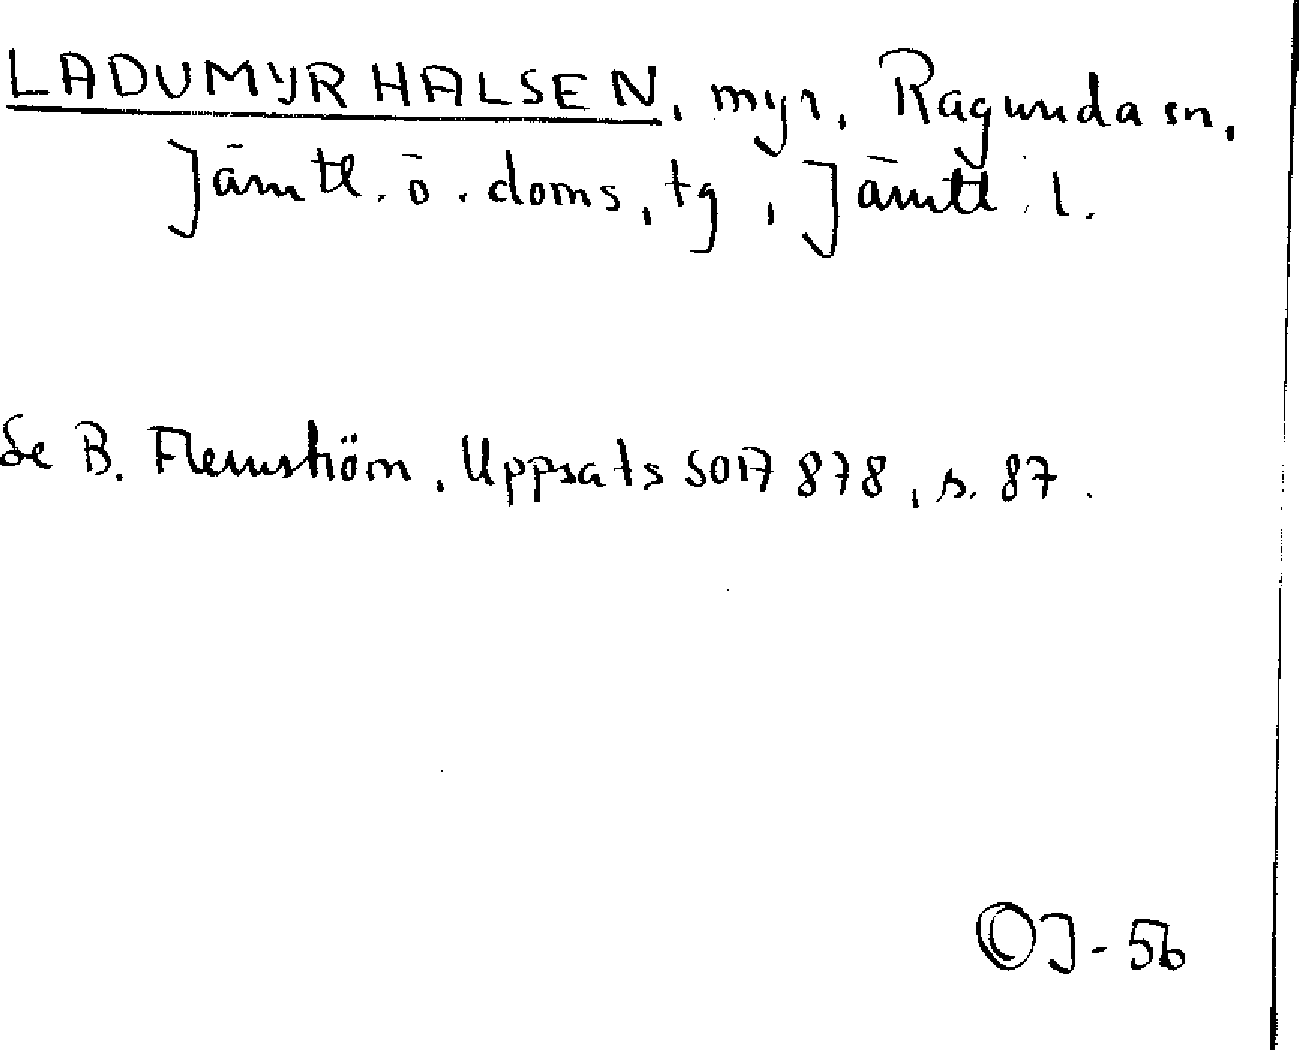 LADUMYRHALSEN, myr, Ragunda sn,
Jämtl. ö. doms, tg, Jämtl. l.
Se B. Flemström, Uppsats SOA 878, s. 87.
OJ-56